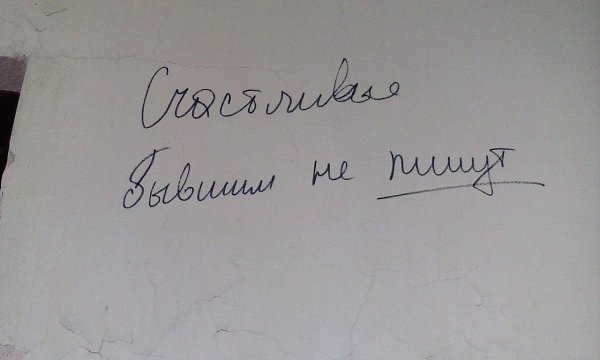 Счастливые
бывшим не пишут